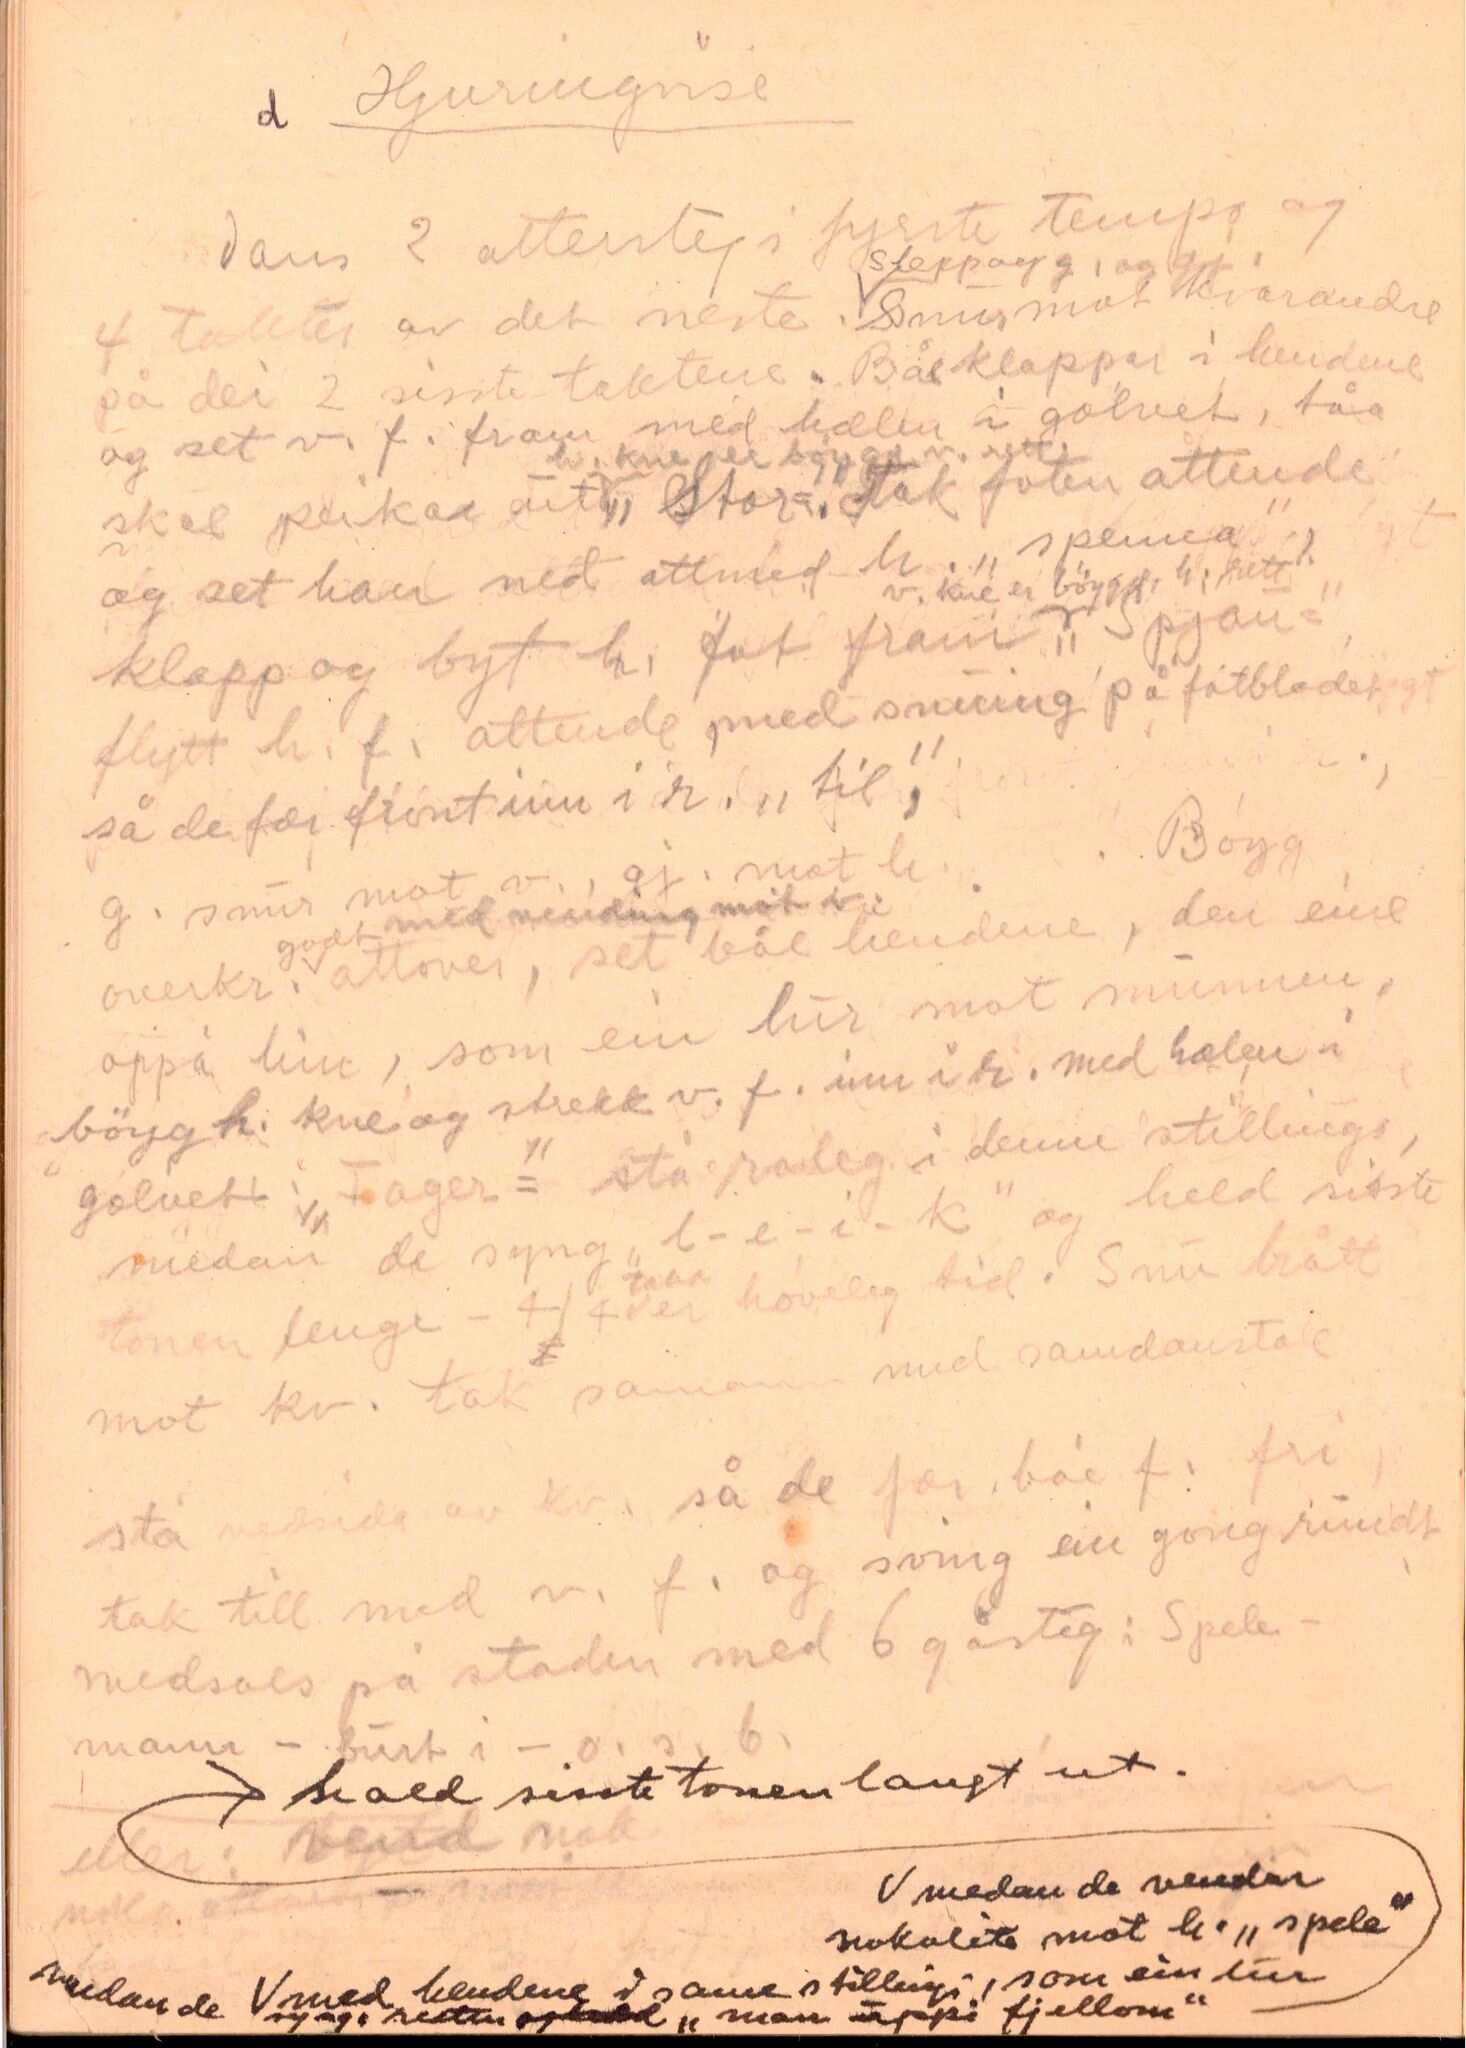 d Hjuringvise
Dans 2 attersteg i fyrste tempo og
steppog g. og gj.
4 takter av det neste. Snur mot kvarandre
på dei 2 sisste taktene. Båe klappar i hendene
og set v. f. fram med hælen i golvet, tåa
h. kne er bøygd v. rett.
skal peika ut „Stor=" Tak foten attende
og set han ned attmed h. „spenna",
v. kne er bøygd, h. rett
klapp og byt h. fot fram „Spjau="
flytt h. f. attende, med snuing på fotbladet
så de fær front inn i r. „til",
g. snur mot v., gj. mot h. Bøyg
godt med vinding mot v.
overkr. attover, set båe hendene, den eine
oppå hin, som ein lur mot munnen,
bøyg h. kne og strekk v. f. inn i r. med hælen i
golvet: „Fager=" stå roleg i denne stillinga,
medan de syng „l-e-i-k" og held sisste
tonen lenge - 4/4 takt er høveleg tid. Snu brått
mot kv. tak samann med samdanstak
stå vedsida av kv. så de fær båe f. fri,
tak till med v. f. og sving ein gong rundt
medsols på staden med 6 gåsteg: Spele-
mann - burt i - o. s. b.
hald sisste tonen langt ut.
eller: vend nok
V medan de vender
nokolite mot h. „spele"
medan de V med hendene i same stilling, som ein lur
syng. „man uppi fjellom"